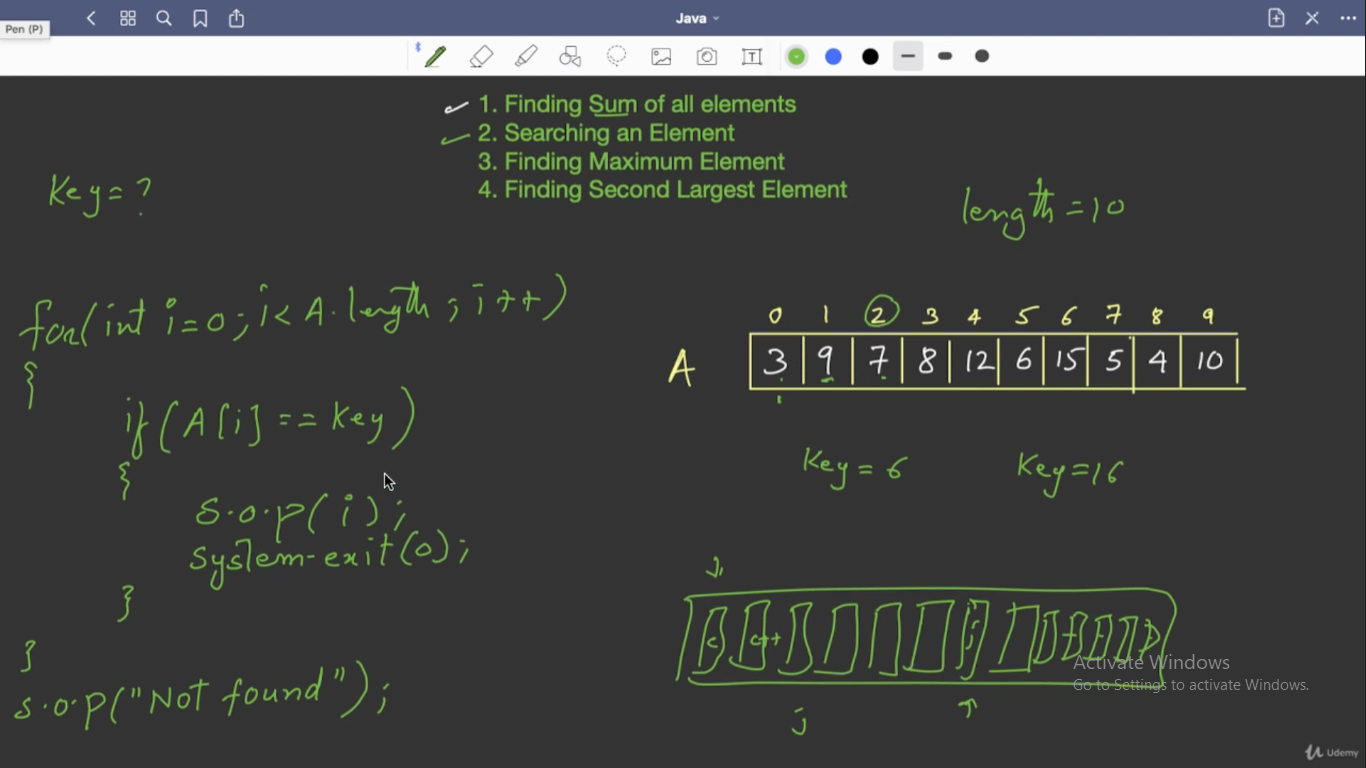 Java
Pen (P)
T
1. Finding Sum of all elements
2. Searching an Element
3. Finding Maximum Element
4. Finding Second Largest Element
Key = ?
length = 10
for(int i=0; i< A.length; i++)
{
if(A[i] == Key)
{
S.o.p(i);
System.exit(0);
}
}
S.o.p("Not found");
0 1 2 3 4 5 6 7 8 9
A 3 9 7 8 12 6 15 5 4 10
Key = 6 Key=16
C C++
Activate Windows
Go to Settings to activate Windows.
j
Udemy